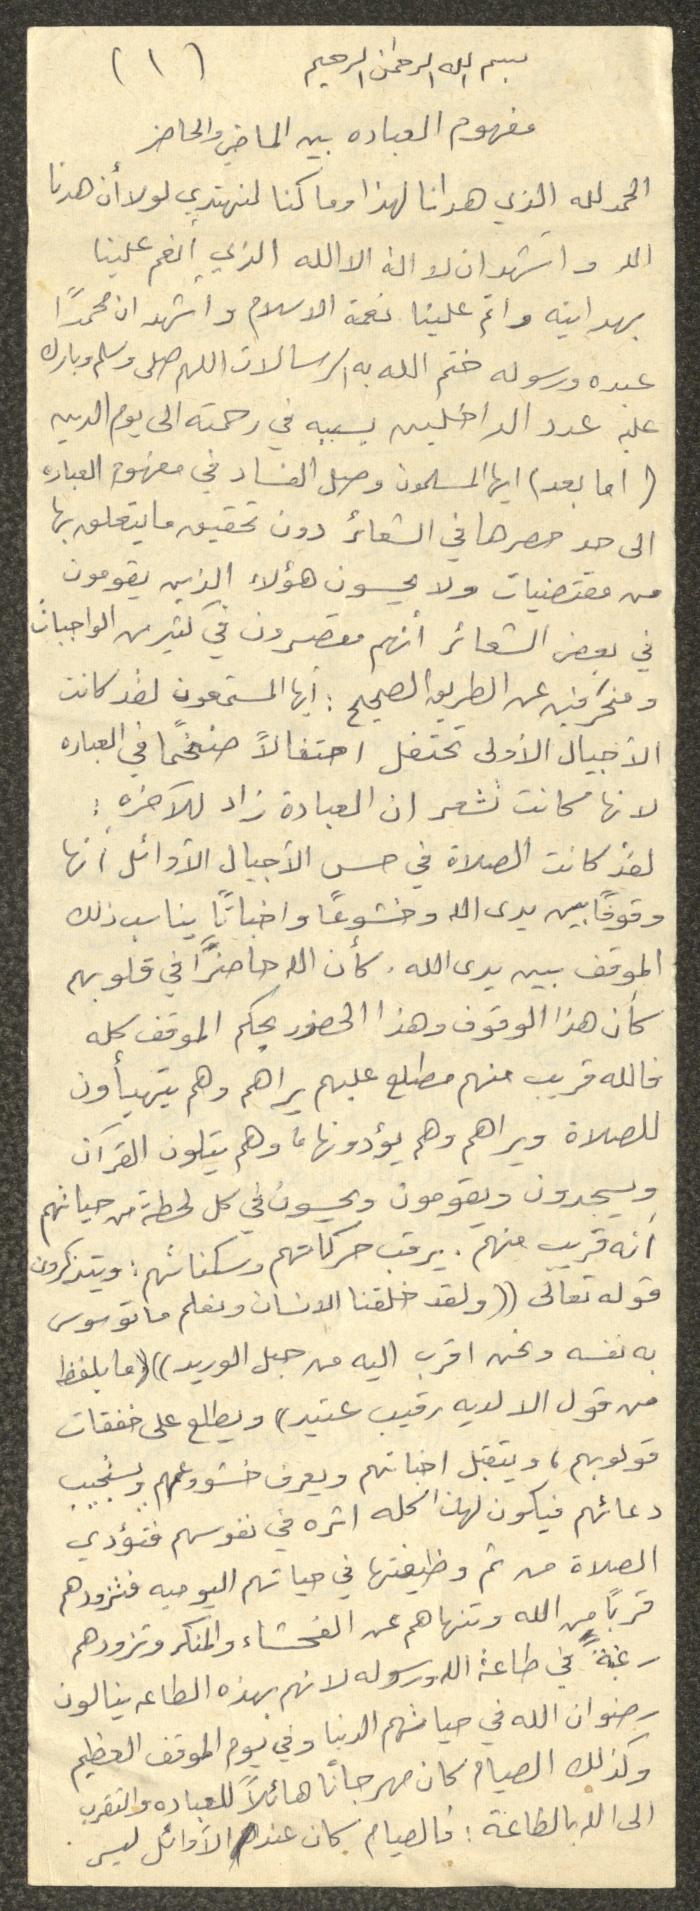 بسم الله الرحمن الرحيم (١)
مفهوم العباده بين الماضي والحاضر
الحمد لله الذي هدانا لهذا وما كنا لنهتدي لولا أن هدنا
الله وأشهد ان لا اله الا الله الذي أنعم علينا
بهدايته واتم علينا نعمة الاسلام وأشهد ان محمدًا
عبده ورسوله ختم الله به الرسالات اللهم صلى وسلم وبارك
عليه عدد الداخلين بسببه في رحمته الى يوم الدين
(اما بعد) ايها المسلمون وصل الفساد في مفهوم العباده
الى حد حصرها في الشعائر دون تحقيق ما يتعلق بها
من مقتضيات ولا يحسون هؤلاء الذين يقومون
في بعض الشعائر أنهم مقصرون في كثير من الواجبات
ومنحرفين عن الطريق الصحيح : أيها المستمعون لقد كانت
الأجيال الأولى تحتفل احتفالاً ضخمًا في العباده
لانها كانت تشعر ان العبادة زاد للآخره :
لقد كانت الصلاة في حس الأجيال الأوائل أنها
وقوفًا بين يدى الله وخشوعًا واخباتًا يناسب ذلك
الموقف بين يدى الله . كأن الله حاضرًا في قلوبهم
كأن هذا الوقوف وهذا الحضور يحكم الموقف كله
فالله قريب منهم مطلع عليهم يراهم وهم يتهيأون
للصلاة ويراهم وهم يؤدونها، وهم يتلون القرآن
ويسجدون ويقومون ويحسون في كل لحظة من حياتهم
أنه قريب منهم . يرقب حركاتهم وسكناتهم : ويتذكرون
قوله تعالى ((ولقد خلقنا الانسان ونعلم ما توسوس
به نفسه ونحن اقرب اليه من حبل الوريد)) (ما يلفظ
من قول الا لديه رقيب عتيد) ويطلع على خفقات
قولوبهم، ويتقبل اخباتهم ويعرف خشووعهم ويستجيب
دعائهم فيكون لهذا كله اثره في نفوسهم فتؤدي
الصلاة من ثم وظيفتها في حياتهم اليوميه فتزودهم
قربًا من الله وتنهاهم عن الفحشاء والمنكر وتزودهم
رغبةً في طاعة الله ورسوله لانهم بهذه الطاعه ينالون
رضوان الله في حياتهم الدنيا وفي يوم الموقف العظيم
وكذلك الصيام كان مهرجانًا هائلاً للعباده والتقرب
الى الله بالطاعة : فالصيام كان عند الأوائل ليس